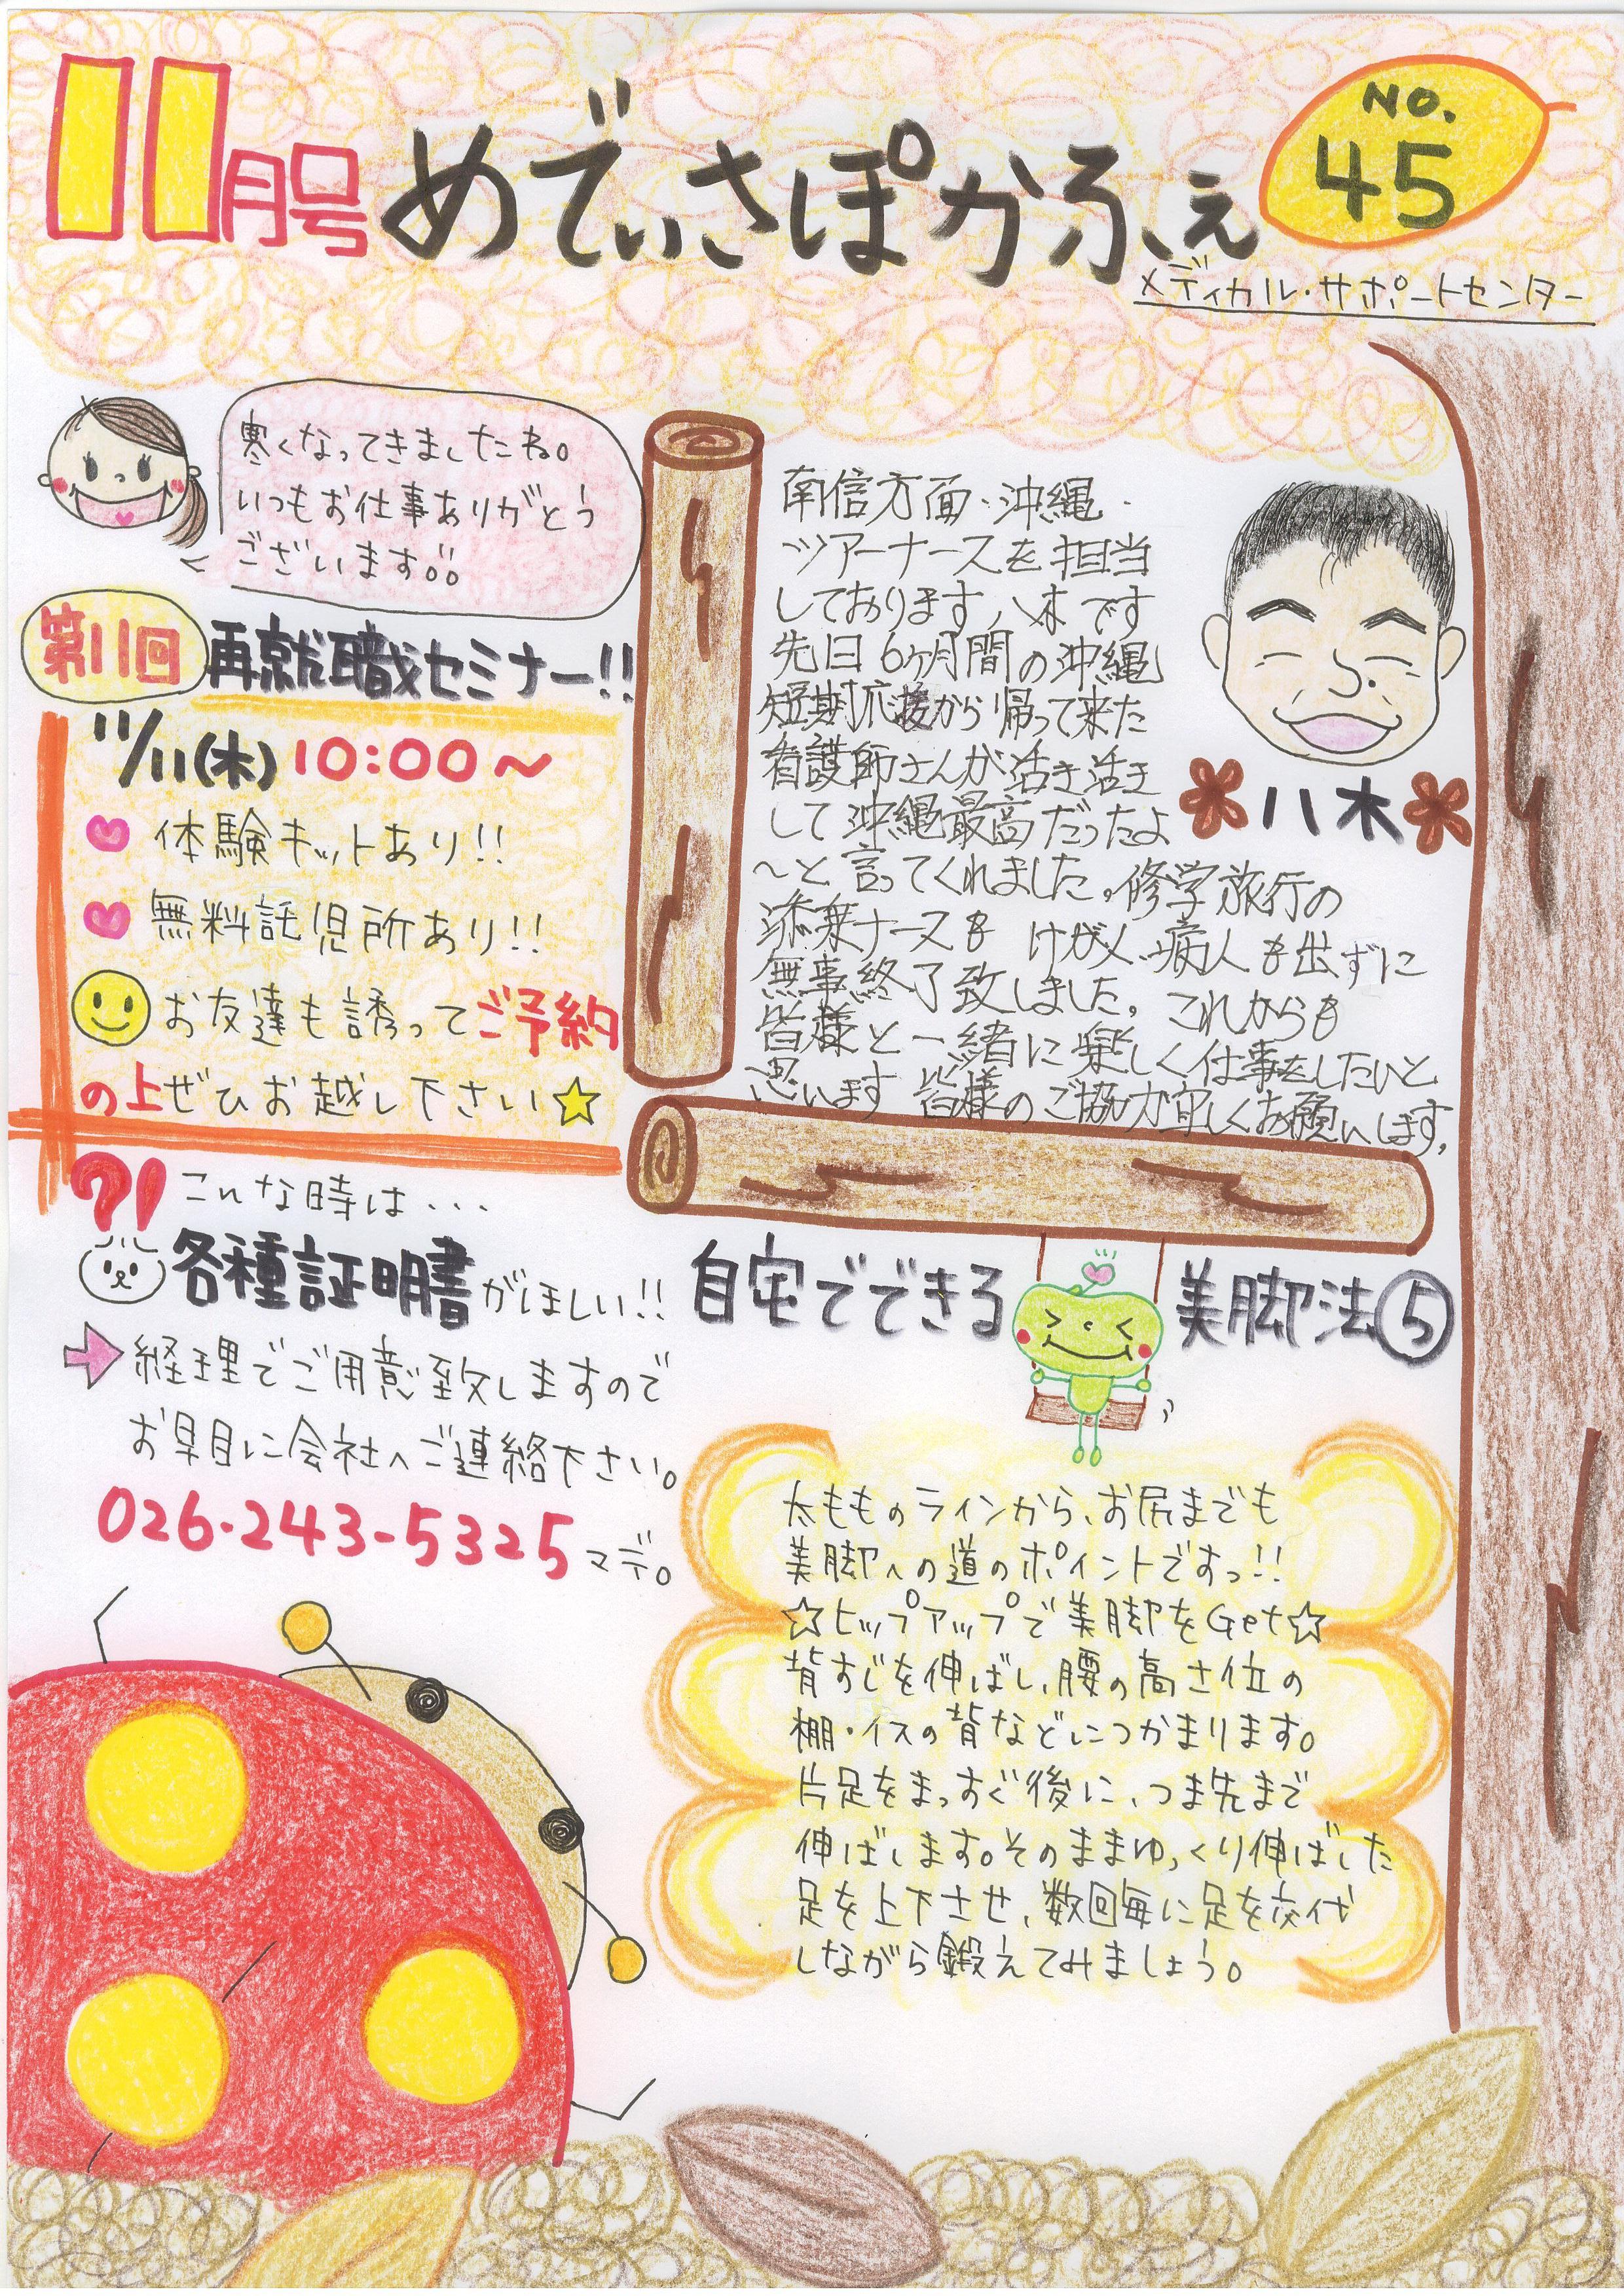 11月号 めでぃさぽかふぇ
NO.
45
メディカル・サポートセンター
寒くなってきましたね。
いつもお仕事ありがとう
ございます。
第11回 再就職セミナー!!
11/11(木) 10:00～
体験キットあり!!
無料託児所あり!!
お友達も誘ってご予約
の上ぜひお越し下さい☆
?! こんな時は・・・
各種証明書がほしい!!
経理でご用意致しますので
お早目に会社へご連絡下さい。
026・243-5325マデ。
南信方面・沖縄・
ツアーナースを担当
しております八木です
先日6ヶ月間の沖縄
短期応援から帰って来た
看護師さんが活き活き
して沖縄最高だったよ
～と言ってくれました。修学旅行の
添乗ナースも けが人、病人も出ずに
無事終了致しました。これからも
皆様と一緒に楽しく仕事をしたいと
思います 皆様のご協力宜しくお願いします。
八木
自宅でできる 美脚法⑤
太もものラインから、お尻までも
美脚への道のポイントですっ!!
☆ヒップアップで美脚をGet☆
背すじを伸ばし、腰の高さ位の
棚・イスの背などにつかまります。
片足をまっすぐ後に、つま先まで
伸ばします。そのままゆっくり伸ばした
足を上下させ、数回毎に足を交代
しながら鍛えてみましょう。